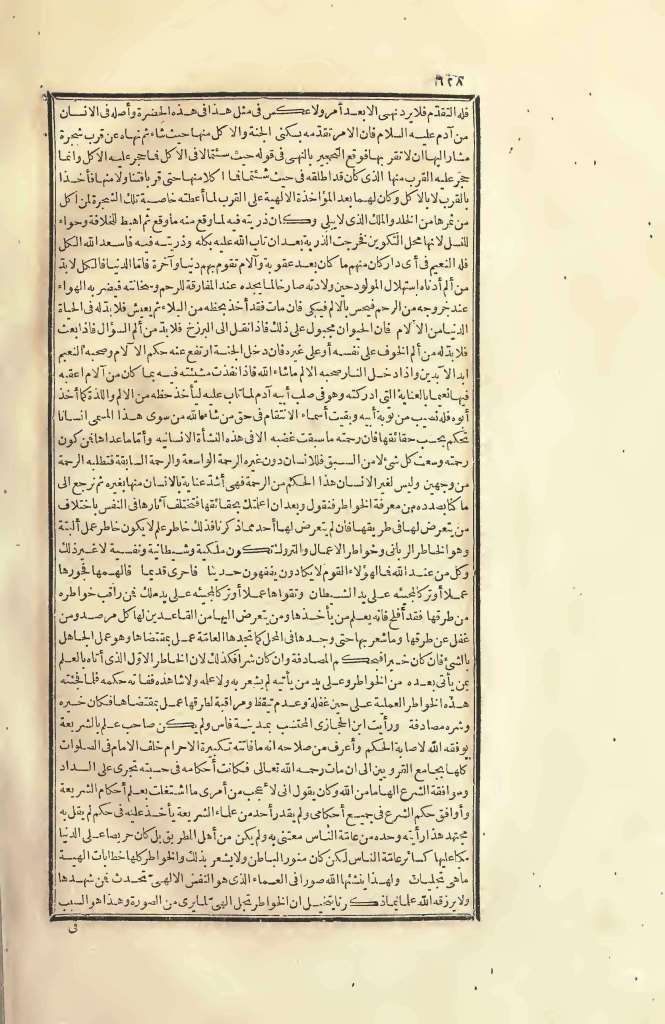 ٦٢٨
فله التقدّم فلا يرد نهى الا بعد أمر ولا عكس فى مثل هذا فى هذه الحضرة وأصله فى الانسان
من آدم عليه السلام فان الامر تقدّمه بسكنى الجنة والاكل منها حيث شاء ثم نهاه عن قرب شجرة
مشار اليها ان لا تقربها فوقع التحجير بالنهى فى قوله حيث شئتما لا فى الاكل فما حجر عليه الاكل وانما
حجر عليه القرب منها الذى كان قد اطلقه فى حيث شئتما فما اكلا منها حتى قربا فتناولا منها فأخذا
بالقرب لا بالاكل وكان لهما بعد المؤاخذة الالهية على القرب لما أعطته خاصية تلك الشجرة لمن اكل
من ثمرها من الخلد والملك الذى لا يبلى وكان ذريته فيه لما وقع منه ما وقع ثم اهبط للخلافة وحواء
للنسل لانها محل التكوين فخرجت الذرية بعد ان تاب الله عليه بكله وذريته فيه فاسعد الله الكل
فله النعيم فى أى دار كان منهم ما كان بعد عقوبة وآلام تقوم بهم دنيا وآخرة فامّا الدنيا فالكل لا بدّ
من ألم أدناه استهلال المولود حين ولادته صارخا لما يجده عند المفارقة للرحم وسخانته فيضربه الهواء
عند خروجه من الرحم فيحس بالالم فيبكى فان مات فقد أخذ بحظه من البلاء ثم يعيش فلا بدّ له فى الحياة
الدنيا من الآلام فان الحيوان مجبول على ذلك فاذا نقل الى البرزخ فلا بدّ من ألم السؤال فاذا بعث
فلا بدّ له من ألم الخوف على نفسه أو على غيره فان دخل الجنة ارتفع عنه حكم الآلام وصحبه النعيم
ابد الآبدين واذا دخل النار صحبه الالم ما شاء الله فاذا نفذت مشيئته فيه بما كان من آلام اعقبه
فيها نعيما بالعناية التى ادركته وهو فى صلب أبيه آدم لما تاب عليه ليأخذ حظه من الالم واللذة كما أخذ
أبوه فله نصيب من توبة أبيه وبقيت أسماء الانتقام فى حق من شاء الله من سوى هذا المسمى انسانا
تتحكم بحسب حقائقها فان رحمته ما سبقت غضبه الا فى هذه النشأة الانسانية وأمّا ما عداها فمن كون
رحمته وسعت كل شئ لا من السبق فللانسان دون غيره الرحمة الواسعة والرحمة السابقة فتطلبه الرحمة
من وجهين وليس لغير الانسان هذا الحكم من الرحمة فهى أشدّ عناية بالانسان منها بغيره ثم نرجع الى
ما كنا بصدده من معرفة الخواطر فنقول وبعد ان اعلمتك بحقائقها فتختلف آثارها فى النفس باختلاف
من يتعرض لها فى طريقها فان لم يتعرض لها أحد مما ذكرنا فذلك خاطر علم لا يكون خاطر عمل ألبتة
وهو الخاطر الربانى وخواطر الاعمال والتروك تكون ملكية وشيطانية ونفسية لا غير ذلك
وكل من عند الله فما لهؤلاء القوم لا يكادون يفقهون حديثا فأحرى قديما فألهمها فجورها
عملا أو تركا لمجيئه على يد الشيطان وتقواها عملا أو تركا لمجيئه على يد ملك فمن راقب خواطره
من طرقها فقد أفلح فانه يعلم من يأخذها ومن يتعرض اليها من القاعدين لها كل مرصد ومن
غفل عن طرقها وما شعر بها حتى وجدها فى المحل كما تجدها العامّة عمل بمقتضاها وهو عمل الجاهل
بالشئ فان كان خيرا فبحكم المصادفة وان كان شرا فكذلك لان الخاطر الاوّل الذى أتاه بالعلم
بمن يأتى بعده من الخواطر وعلى يد من يأتيه لم يشعر به ولا علمه ولا شاهده ففاته حكمه فلما فجئته
هذه الخواطر العملية على حين غفلة وعدم تيقظ ومراقبة لطرقها عمل بمقتضاها فكان خيره
وشره مصادفة ورأيت ابن الحجازى المحتسب بمدينة فاس ولم يكن صاحب علم بالشريعة
يوفقه الله لاصابة الحكم وأعرف من صلاحه انه ما فاتته تكبيرة الاحرام خلف الامام فى الصلوات
كلها بجامع القرويين الى ان مات رحمه الله تعالى فكانت أحكامه فى حسبته تجرى على السداد
وموافقة الشرع الهاما من الله وكان يقول انى لاعجب من أمرى ما اشتغلت بعلم أحكام الشريعة
وأوافق حكم الشرع فى جميع أحكامى ولم يقدر أحد من علماء الشريعة يأخذ عليه فى حكم لم يقل به
مجتهد هذا رأيته وحده من عامّة الناس معتنى به ولم يكن من أهل الطريق بل كان حريصا على الدنيا
مكبا عليها كسائر عامّة الناس لكن كان منور الباطن ولا يشعر بذلك والخواطر كلها خطابات الهية
ما هى تجليات ولهذا ينشئها الله صورا فى العماء الذى هو النفس الالهىّ تتحدث فمن شهدها
ولا يرزقه الله علما بما ذكرنا يتخيل ان الخواطر تجل الهىّ لما يرى من الصورة وهذا هو السبب
فى